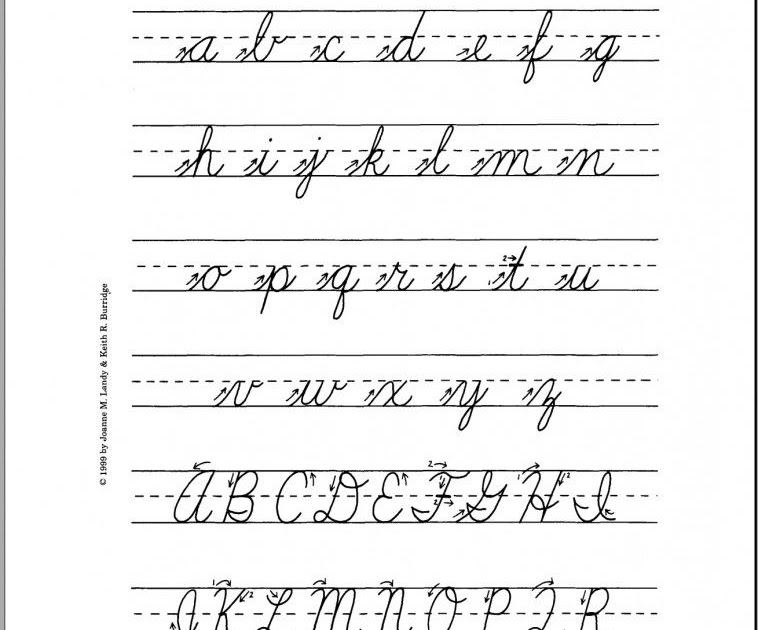 a b c d e f g
h i j k l m n
o p q r s t u
v w x y z
A B C D E F G H I
J K L M N O P Q R
© 1999 by Joanne M. Landy & Keith R. Burridge